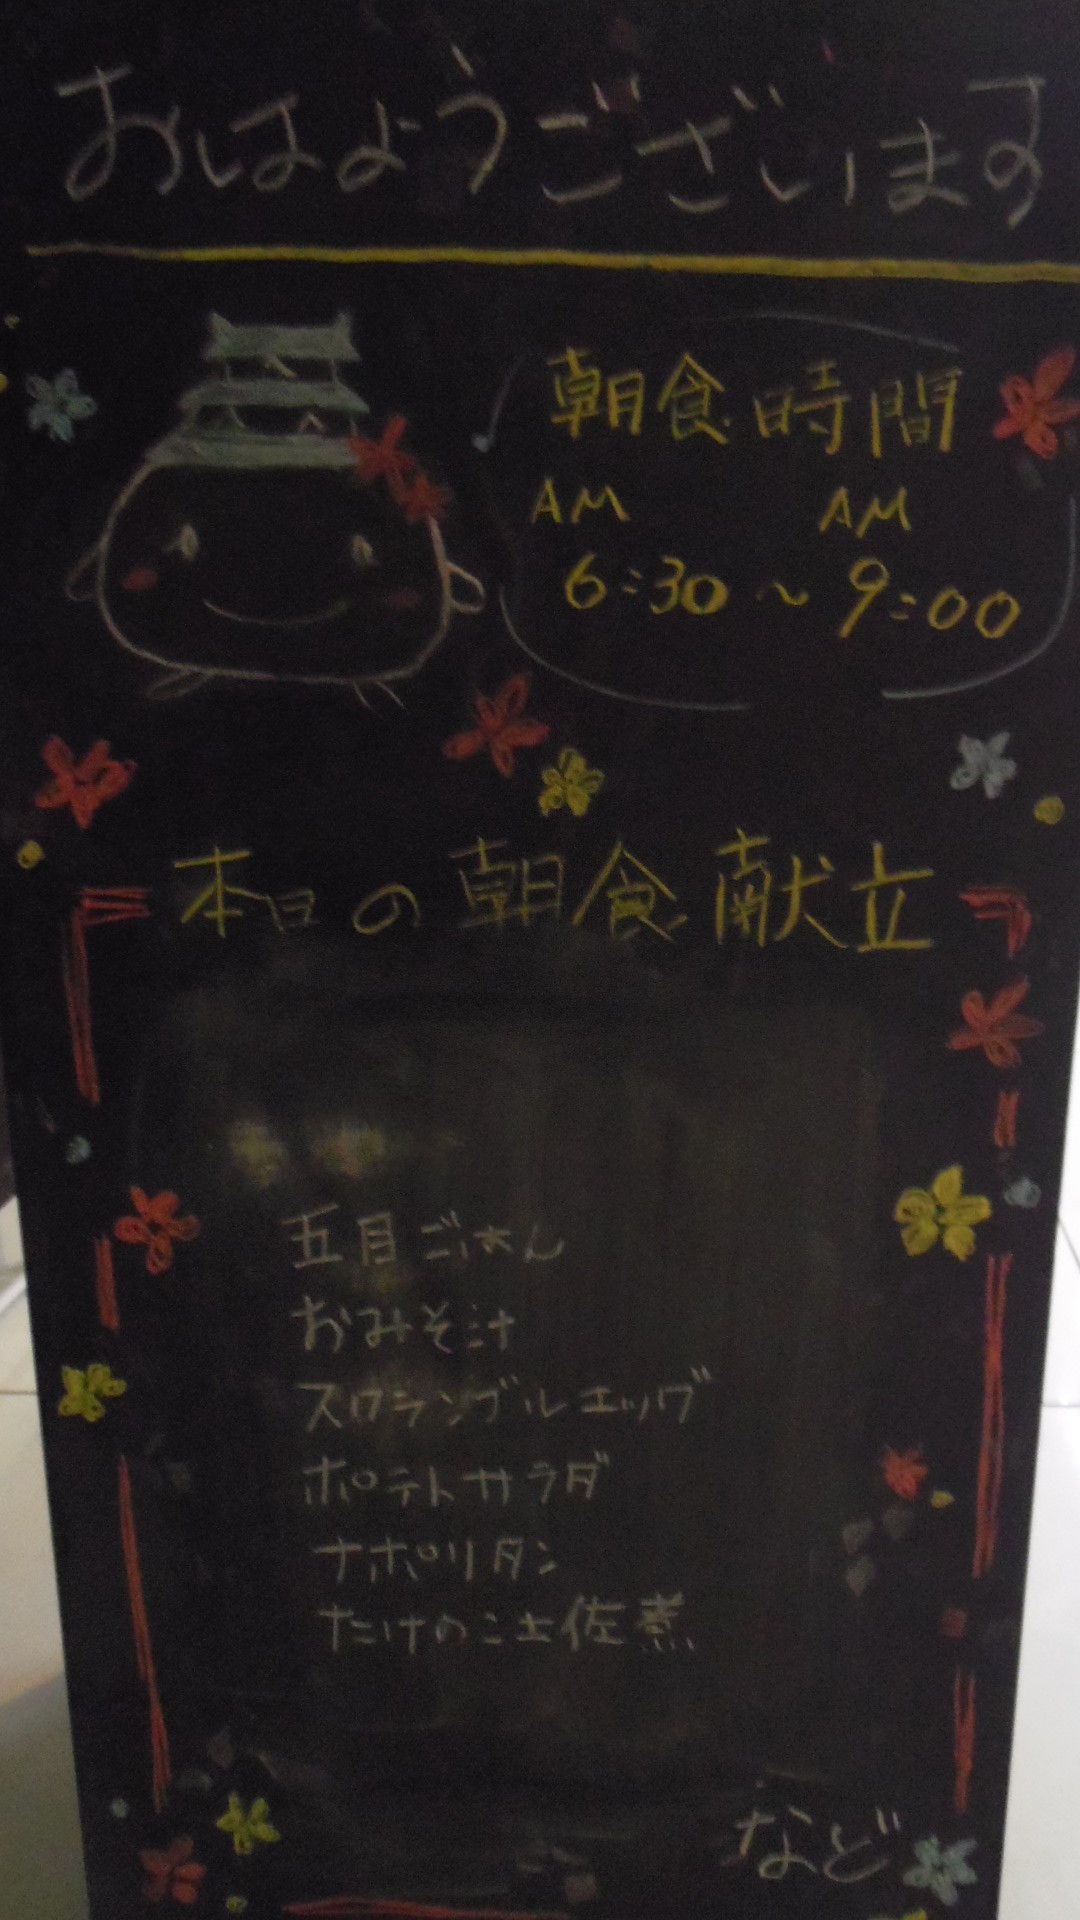 おはようございます
朝食時間
AM AM
6:30～9:00
本日の朝食献立
五目ごはん
おみそ汁
スクランブルエッグ
ポテトサラダ
ナポリタン
たけのこ土佐煮
など